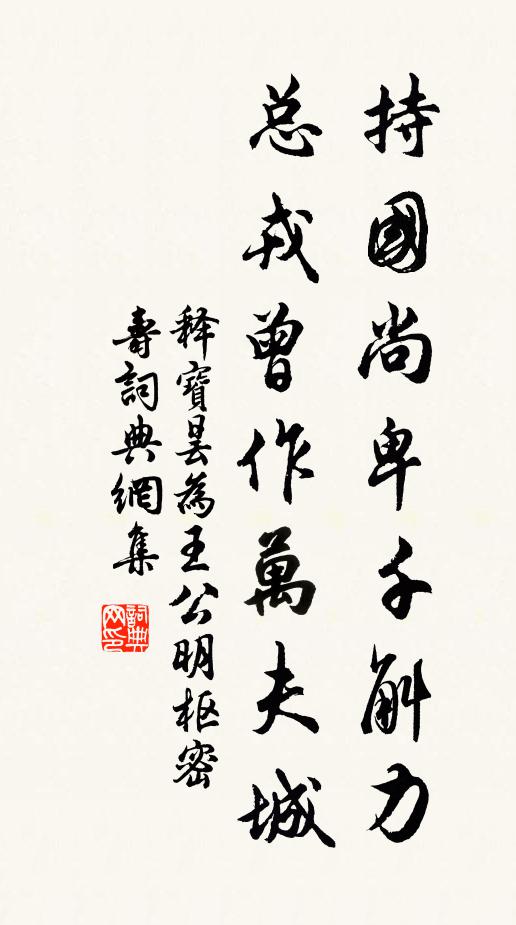 持國尚卑千斛力
总戎曾作萬夫城
释寶昙為王公明枢密
壽詞典網集
詞典网印